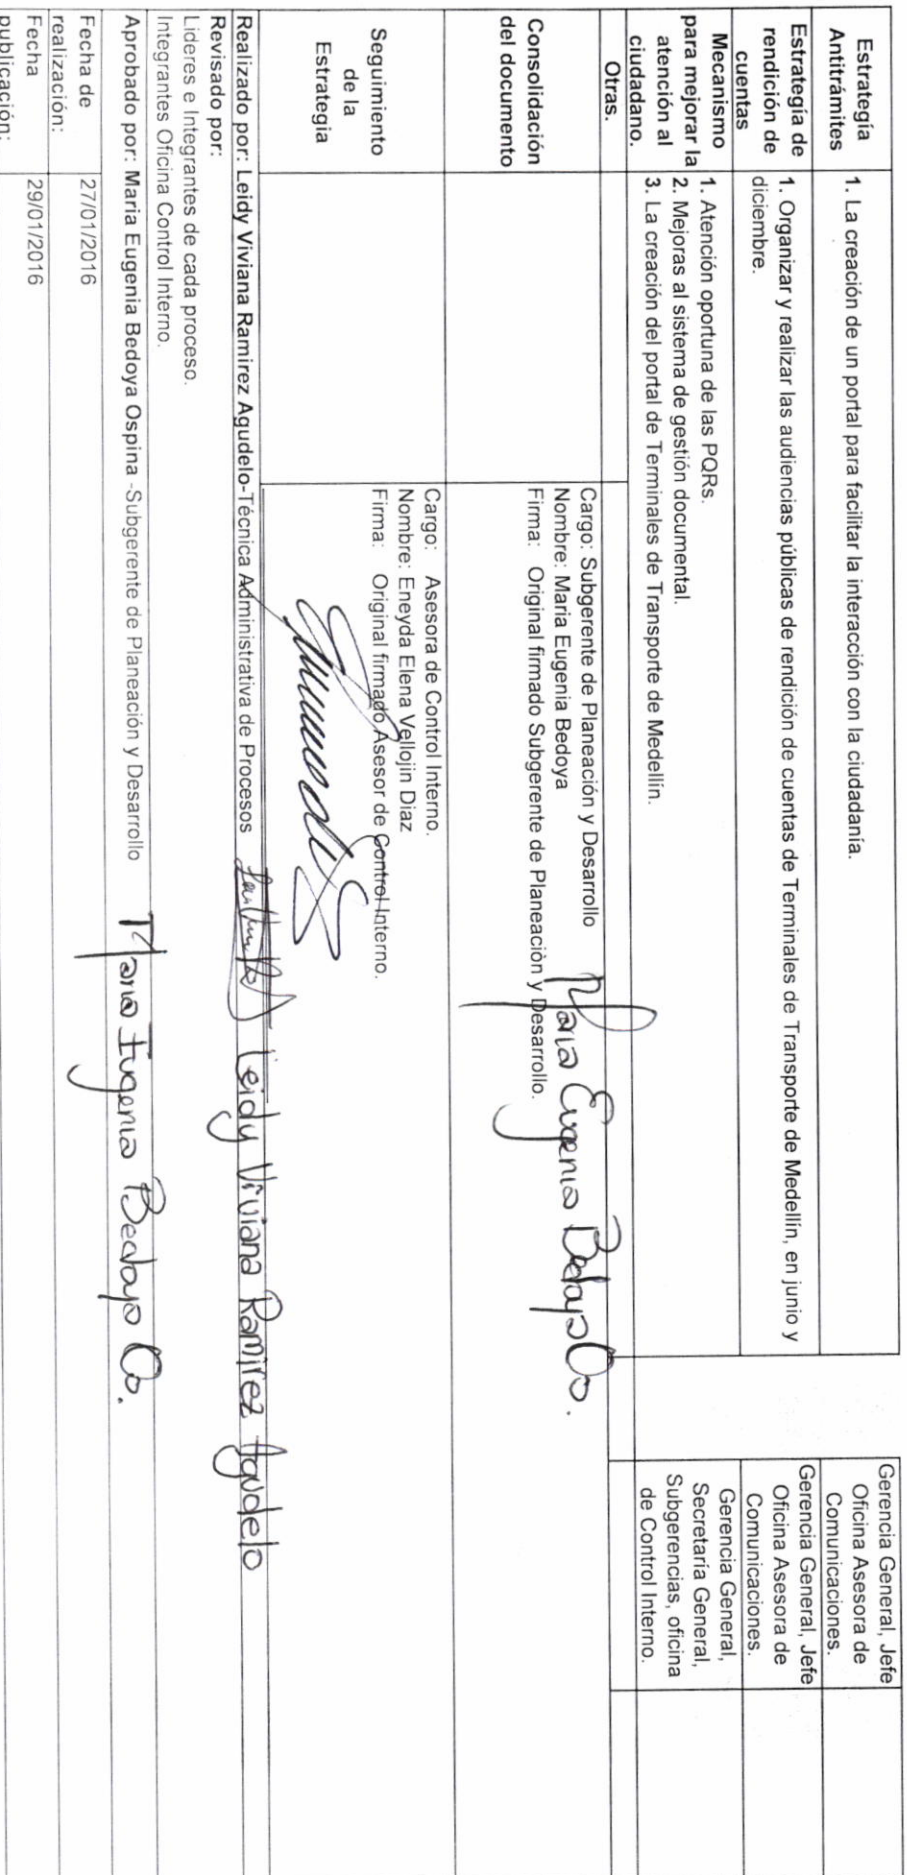 Estrategía
Antitrámites
1. La creación de un portal para facilitar la interacción con la ciudadanía.
Gerencia General, Jefe
Oficina Asesora de
Comunicaciones.
Estrategía de
rendición de
cuentas
1. Organizar y realizar las audiencias públicas de rendición de cuentas de Terminales de Transporte de Medellín, en junio y
diciembre.
Gerencia General, Jefe
Oficina Asesora de
Comunicaciones.
Mecanismo
para mejorar la
atención al
ciudadano.
1. Atención oportuna de las PQRs.
2. Mejoras al sistema de gestión documental.
3. La creación del portal de Terminales de Transporte de Medellín.
Gerencia General,
Secretaría General,
Subgerencias, oficina
de Control Interno.
Otras.
Consolidación
del documento
Cargo: Subgerente de Planeación y Desarrollo
Nombre: Maria Eugenia Bedoya
Firma: Original firmado Subgerente de Planeación y Desarrollo.
Maria Eugenia Bedoya O.
Seguimiento
de la
Estrategia
Cargo: Asesora de Control Interno.
Nombre: Eneyda Elena Vellojin Diaz
Firma: Original firmado Asesor de Control Interno.
Realizado por: Leidy Viviana Ramirez Agudelo-Técnica Administrativa de Procesos
Leidy Viviana Ramirez Agudelo
Revisado por:
Lideres e Integrantes de cada proceso.
Integrantes Oficina Control Interno.
Aprobado por: Maria Eugenia Bedoya Ospina -Subgerente de Planeación y Desarrollo
Maria Eugenia Bedoya O.
Fecha de
realización:
27/01/2016
Fecha
publicación:
29/01/2016